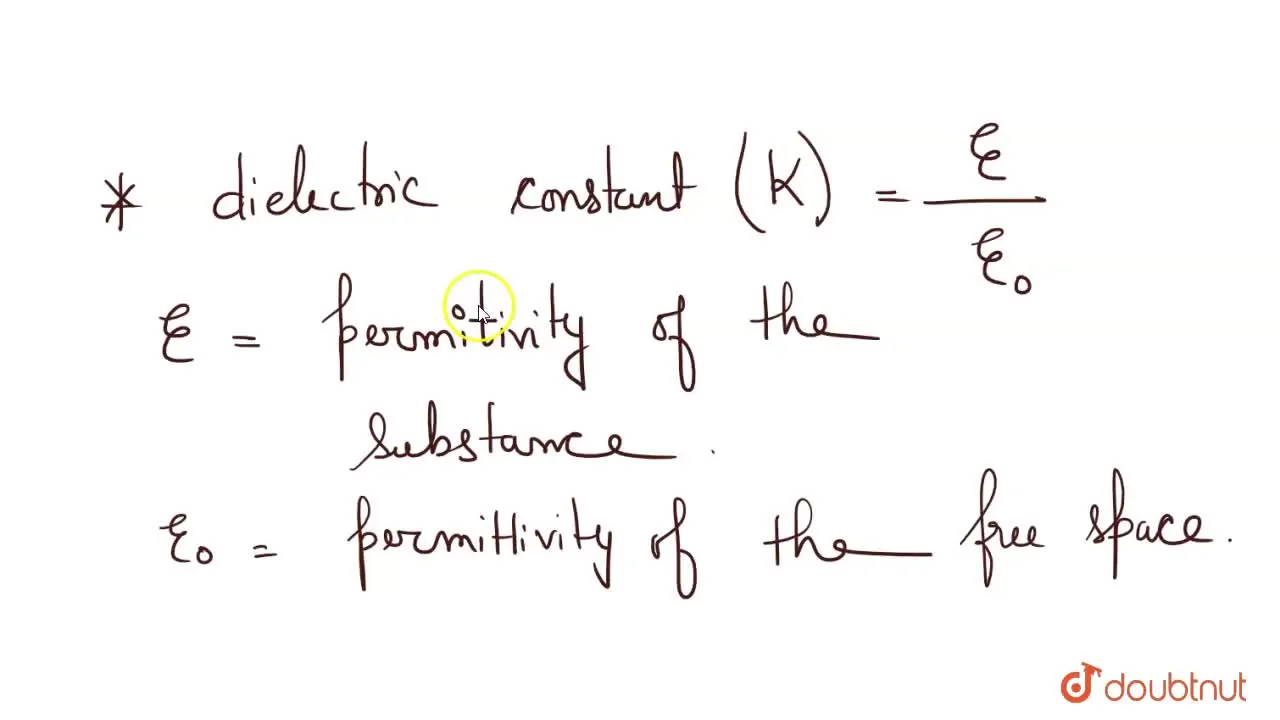 * dielectric constant (K) = ε / ε₀
ε = permitivity of the
substance.
ε₀ = permittivity of the free space.
doubtnut